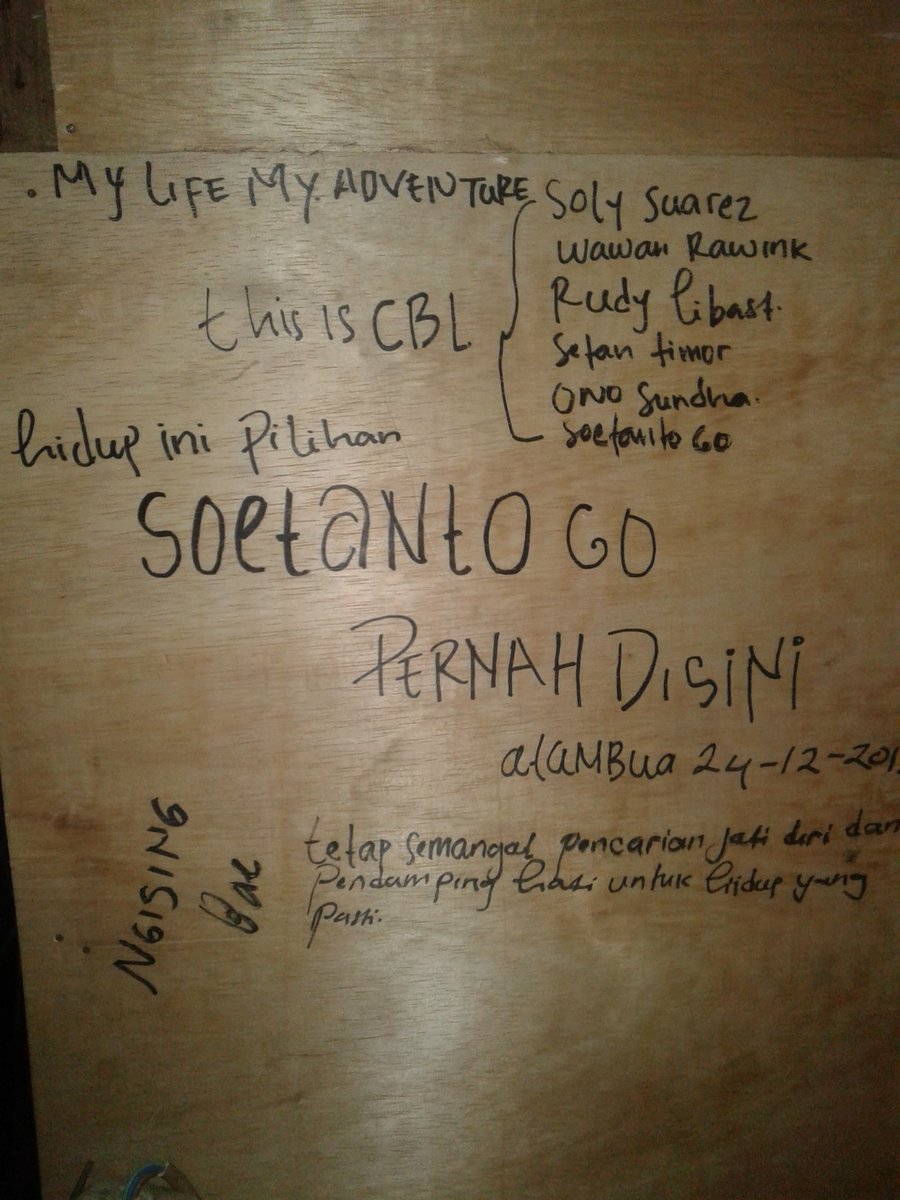 . My LIFE My ADVENTURE
Soly Suarez
wawan Rawink
Rudy libast.
Setan timor
ONO Sundha.
Soetanto GO
this IS CBL
hidup ini Pilihan
Soet@Nto GO
PERNAH DISiNi
atAMBUa 24-12-201
tetap semangat pencarian jati diri dan
Pendamping hati untuk hidup yang
Pasti.
NGISING
Bae